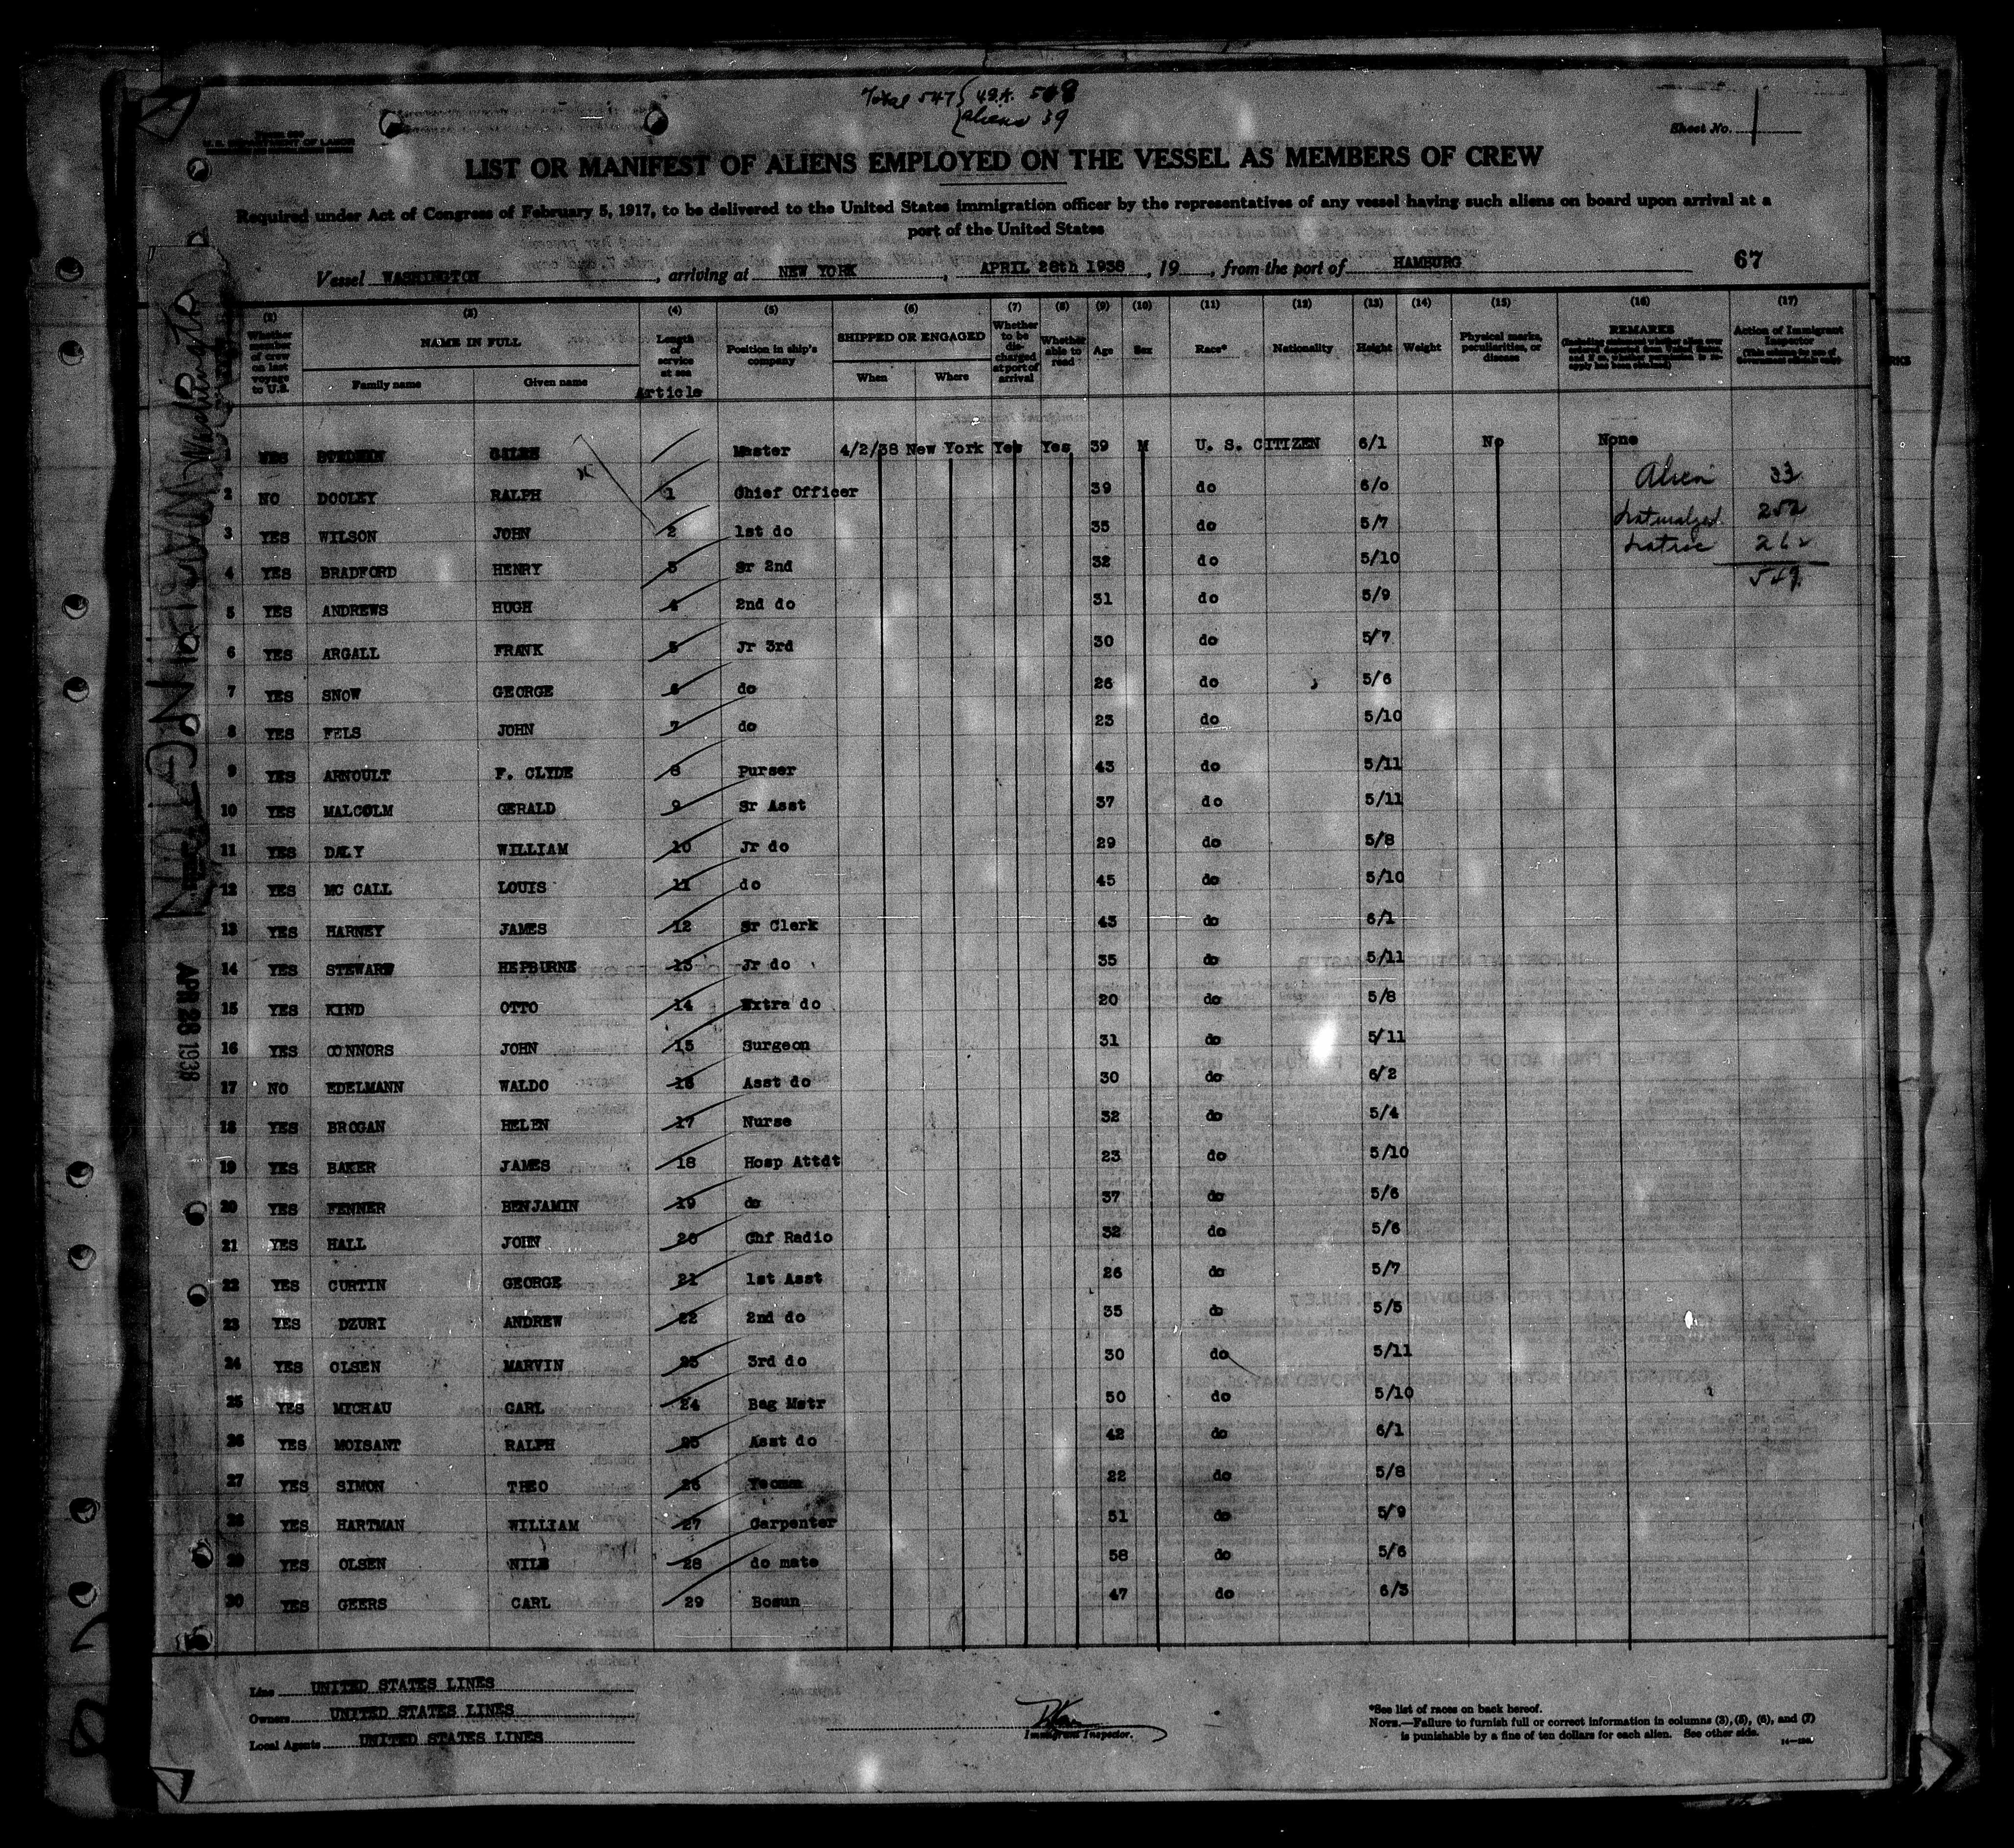 Total 547 { U.S.A. 508
Aliens 39
U. S. DEPARTMENT OF LABOR
Sheet No. 1
LIST OR MANIFEST OF ALIENS EMPLOYED ON THE VESSEL AS MEMBERS OF CREW
Required under Act of Congress of February 5, 1917, to be delivered to the United States immigration officer by the representatives of any vessel having such aliens on board upon arrival at a
port of the United States
Vessel WASHINGTON, arriving at NEW YORK, APRIL 28th 1938, 19, from the port of HAMBURG 67
(2) (3) (4) (5) (6) (7) (8) (9) (10) (11) (12) (13) (14) (15) (16) (17)
Whether member of crew on last voyage to U.S. NAME IN FULL Family name Given name Length of service at sea Article Position in ship's company SHIPPED OR ENGAGED When Where Whether to be discharged at port of arrival Whether able to read Age Sex Race* Nationality Height Weight Physical marks, peculiarities, or disease REMARKS Action of Immigrant Inspector
YES STEDMAN GILES Master 4/2/38 New York Yes Yes 39 M U. S. CITIZEN 6/1 No None
2 NO DOOLEY RALPH 1 Chief Officer 39 do 6/0 Alien 33
3 YES WILSON JOHN 2 1st do 35 do 5/7 Naturalized 252
4 YES BRADFORD HENRY 3 Sr 2nd 32 do 5/10 Native 262
549
5 YES ANDREWS HUGH 4 2nd do 31 do 5/9
6 YES ARGALL FRANK 5 Jr 3rd 30 do 5/7
7 YES SNOW GEORGE 6 do 26 do 5/6
8 YES FELS JOHN 7 do 23 do 5/10
9 YES ARNOULT F. CLYDE 8 Purser 43 do 5/11
10 YES MALCOLM GERALD 9 Sr Asst 37 do 5/11
11 YES DALY WILLIAM 10 Jr do 29 do 5/8
12 YES MC CALL LOUIS 11 do 45 do 5/10
13 YES HARNEY JAMES 12 Sr Clerk 43 do 6/1
14 YES STEWART HEPBURNE 13 Jr do 35 do 5/11
15 YES KIND OTTO 14 Extra do 20 do 5/8
16 YES CONNORS JOHN 15 Surgeon 31 do 5/11
17 NO EDELMANN WALDO 16 Asst do 30 do 6/2
18 YES BROGAN HELEN 17 Nurse 32 do 5/4
19 YES BAKER JAMES 18 Hosp Attdt 23 do 5/10
20 YES FENNER BENJAMIN 19 do 37 do 5/6
21 YES HALL JOHN 20 Chf Radio 32 do 5/6
22 YES CURTIN GEORGE 21 1st Asst 26 do 5/7
23 YES DZURI ANDREW 22 2nd do 35 do 5/5
24 YES OLSEN MARVIN 23 3rd do 30 do 5/11
25 YES MICHAU CARL 24 Bag Mstr 50 do 5/10
26 YES MOISANT RALPH 25 Asst do 42 do 6/1
27 YES SIMON THEO 26 Yeoman 22 do 5/8
28 YES HARTMAN WILLIAM 27 Carpenter 51 do 5/9
29 YES OLSEN NILS 28 do mate 58 do 5/6
30 YES GEERS CARL 29 Bosun 47 do 6/3
WASHINGTON
APR 28 1938
Line UNITED STATES LINES
Owners UNITED STATES LINES
Local Agents UNITED STATES LINES
Immigrant Inspector.
*See list of races on back hereof.
NOTE.—Failure to furnish full or correct information in columns (3), (5), (6), and (7)
is punishable by a fine of ten dollars for each alien. See other side.